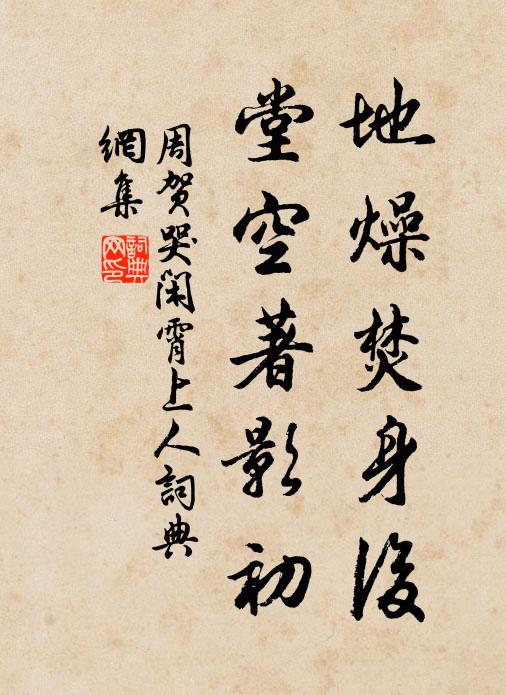 地燥焚身後
堂空著影初
周賀哭閑霄上人詞典
網集
詞典
网印